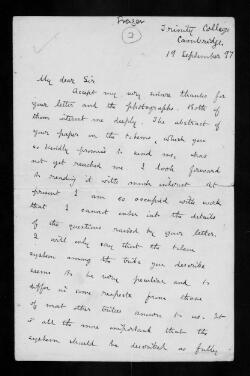 Frazer
2
Trinity College
Cambridge.
19 September 97
My dear Sir
Accept my very sincere thanks for
your letter and the photographs. Both of
them interest me deeply. The abstract of
your paper on the totems, which you
so kindly promise to send me, has
not yet reached me. I look forward
to reading it with much interest. At
present I am so occupied with work
that I cannot enter into the details
of the questions raised by your letter.
I will only say that the totem
system among the tribe you describe
seems to be very peculiar and to
differ in some respects from those
of most other tribes known to us. It
is all the more important that the
system should be described as fully